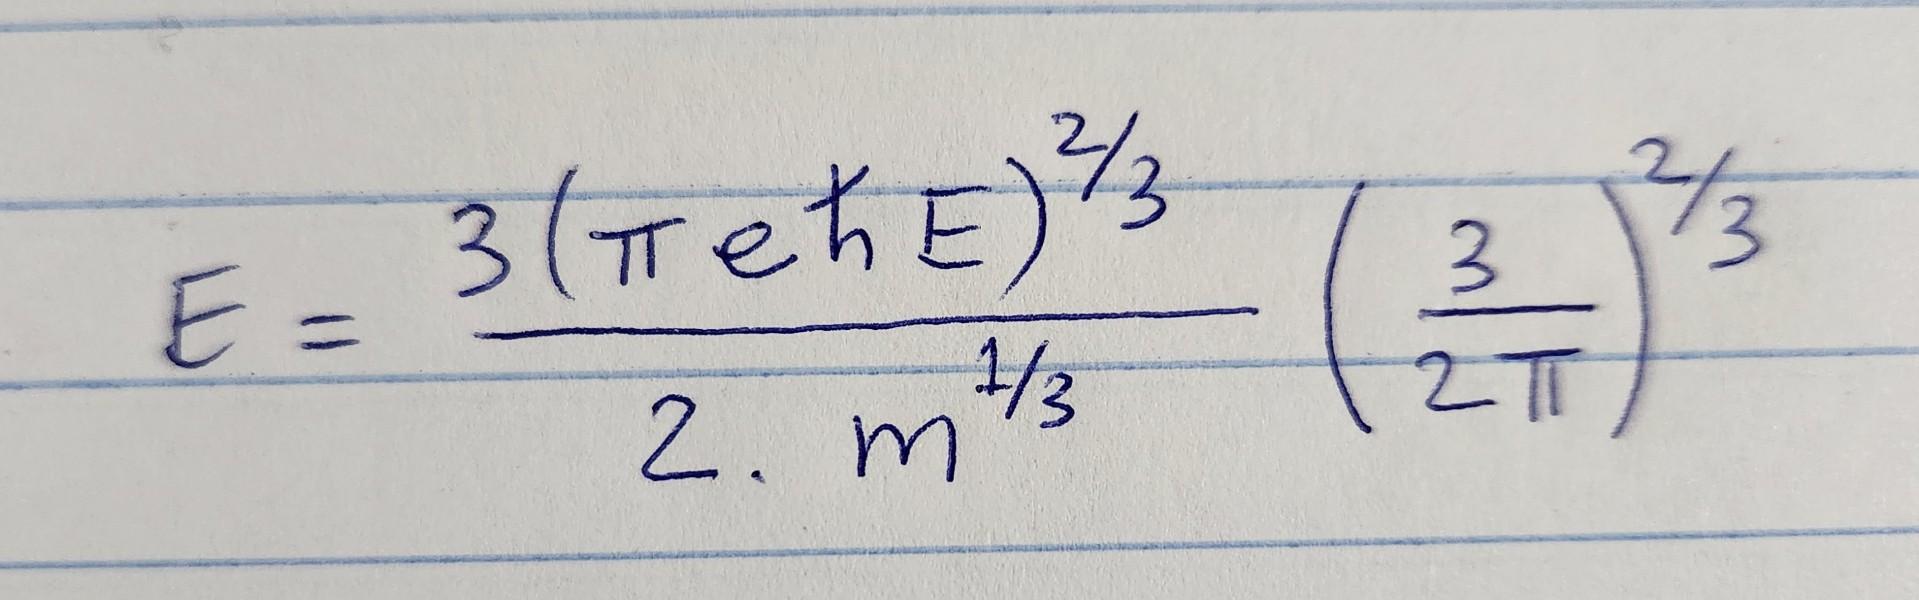 E = \frac{3(\pi e \hbar E)^{2/3}}{2. m^{1/3}} \left(\frac{3}{2\pi}\right)^{2/3}